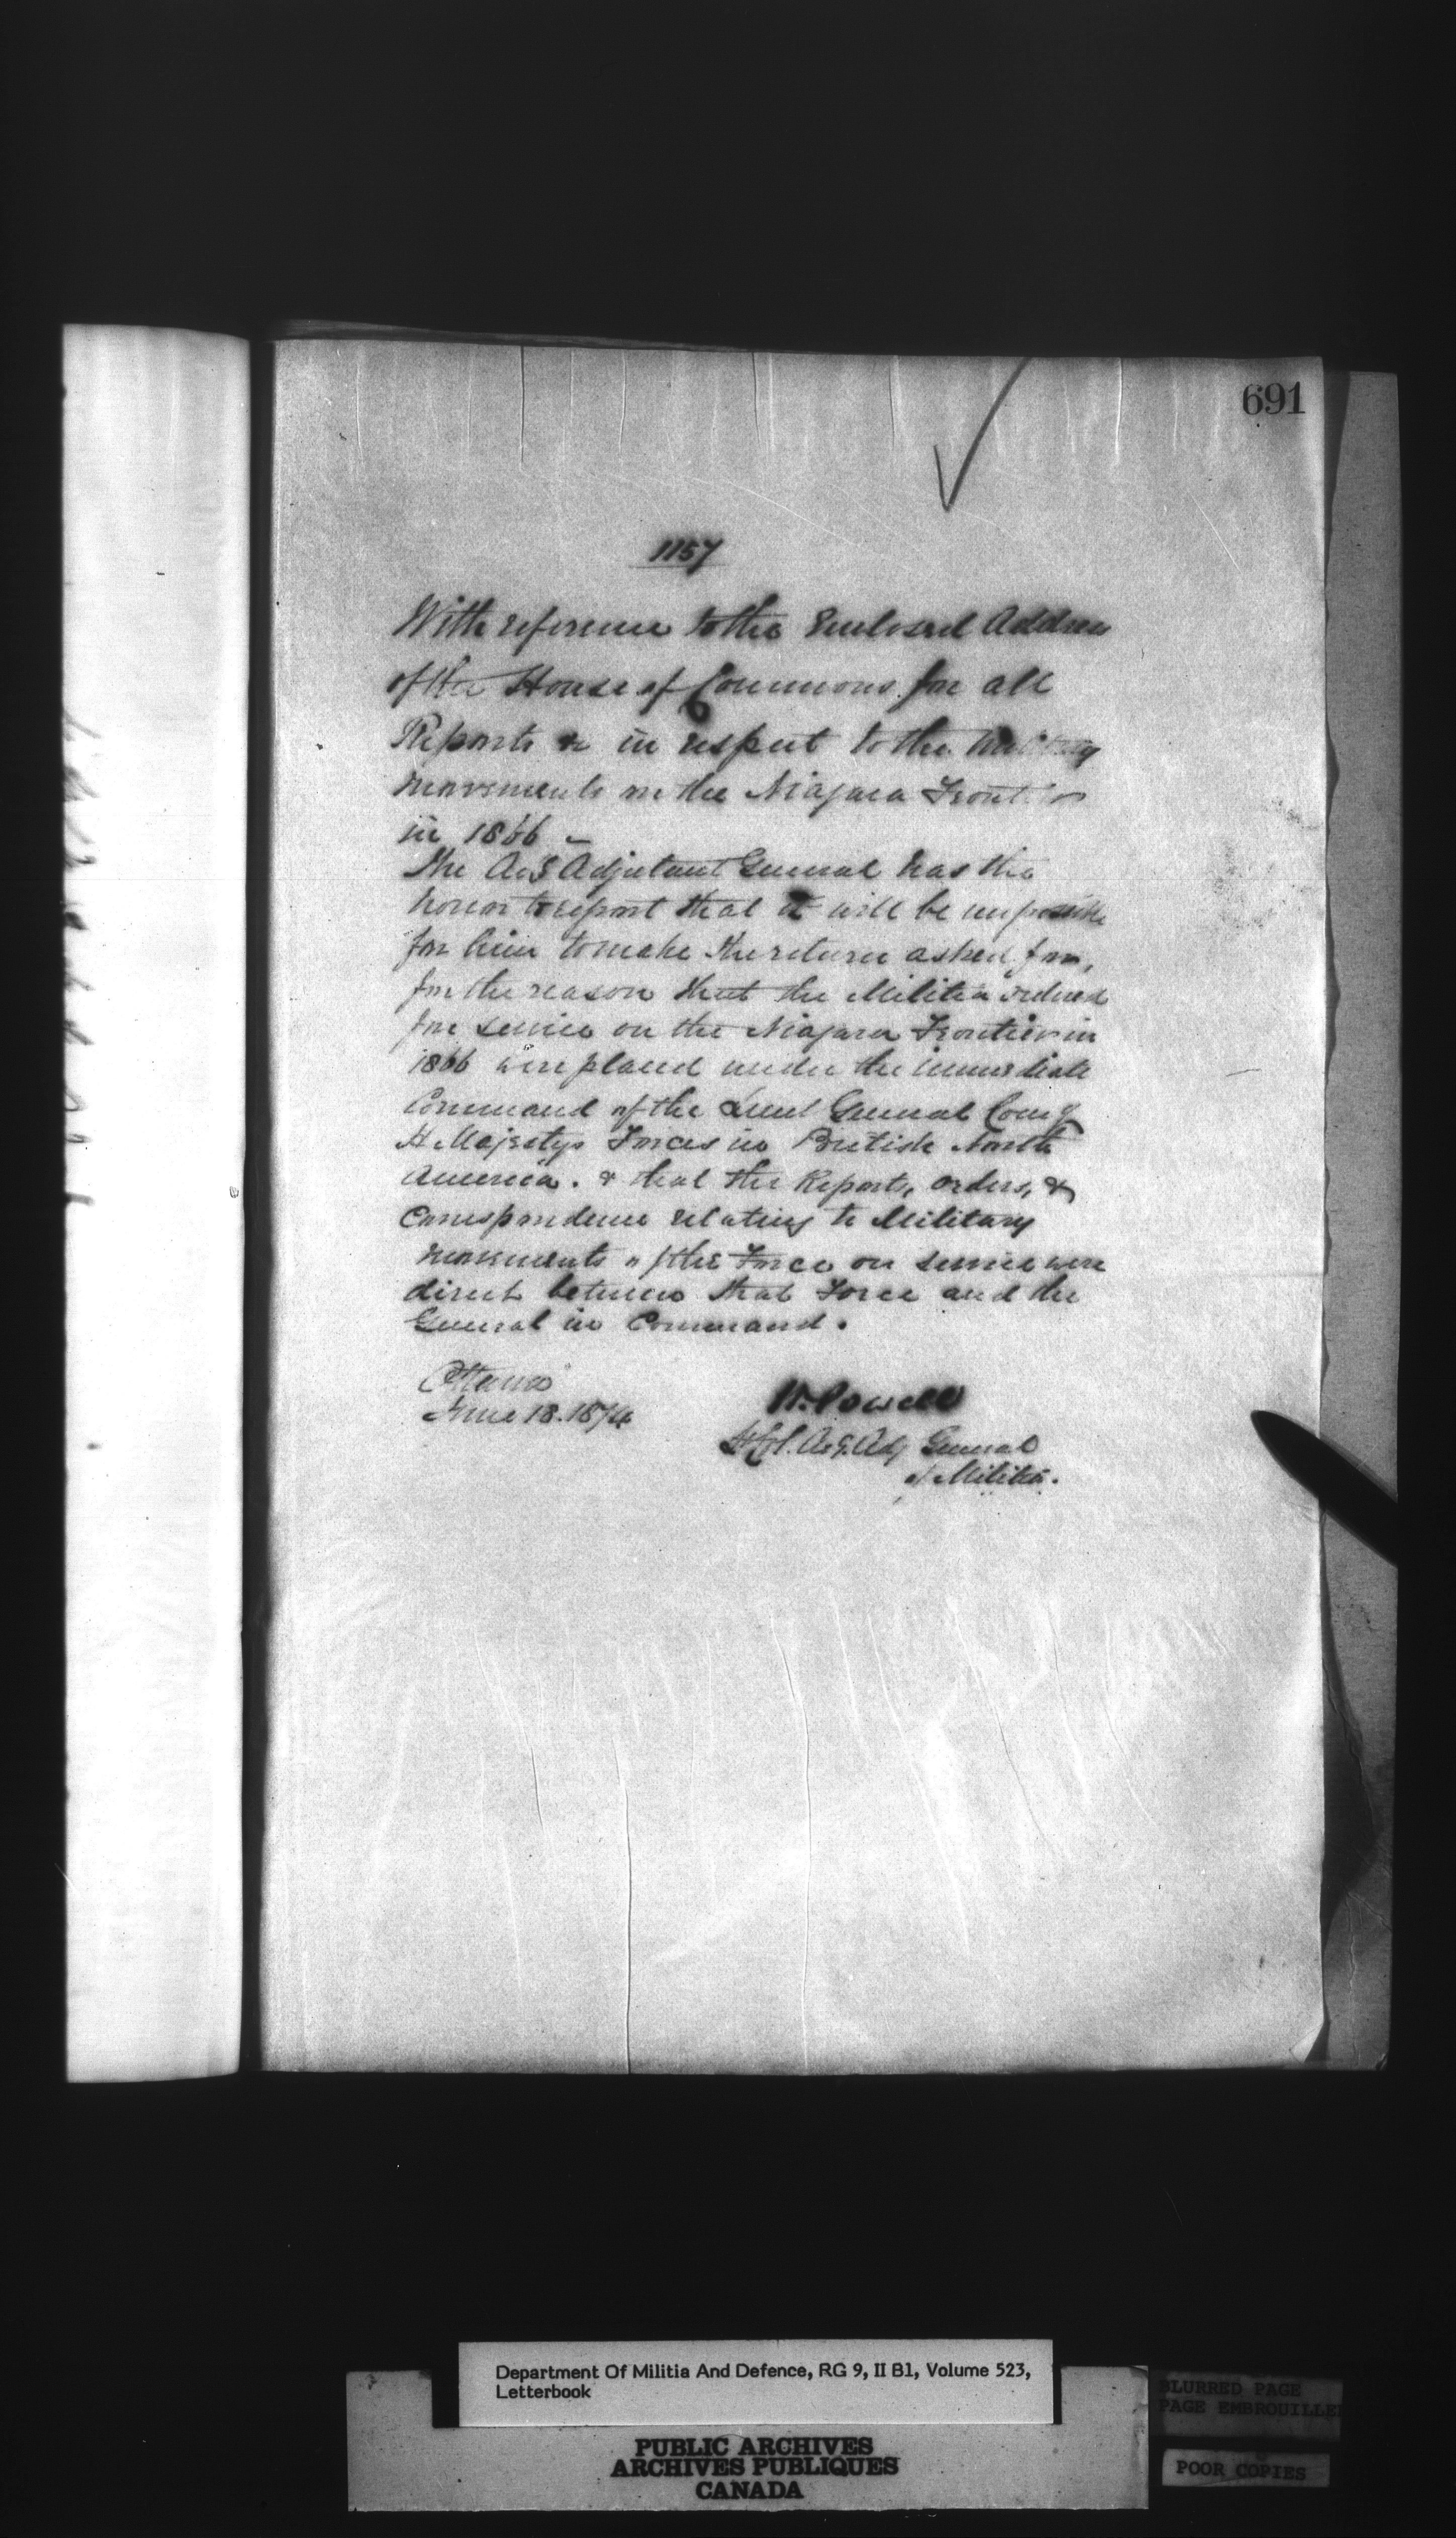 691
1157
With reference to the Enclosed Address
of the House of Commons for all
Reports &c in respect to the Military
movements on the Niagara Frontier
in 1866 –
The Actg Adjutant General has the
honor to report that it will be impossible
for him to make the return asked for,
for the reason that the Militia ordered
for service on the Niagara Frontier in
1866 were placed under the immediate
Command of the Lieut General Comg
H. Majestys Forces in British North
America. & that the Reports, orders, &
Correspondence relating to Military
movements of the Force on service were
direct between that Force and the
General in Command.
Ottawa
June 18. 1874
W. Powell
Lt Col. Actg. Adj General
of Militia.
Department Of Militia And Defence, RG 9, II B1, Volume 523,
Letterbook
PUBLIC ARCHIVES
ARCHIVES PUBLIQUES
CANADA
BLURRED PAGE
PAGE EMBROUILLEE
POOR COPIES